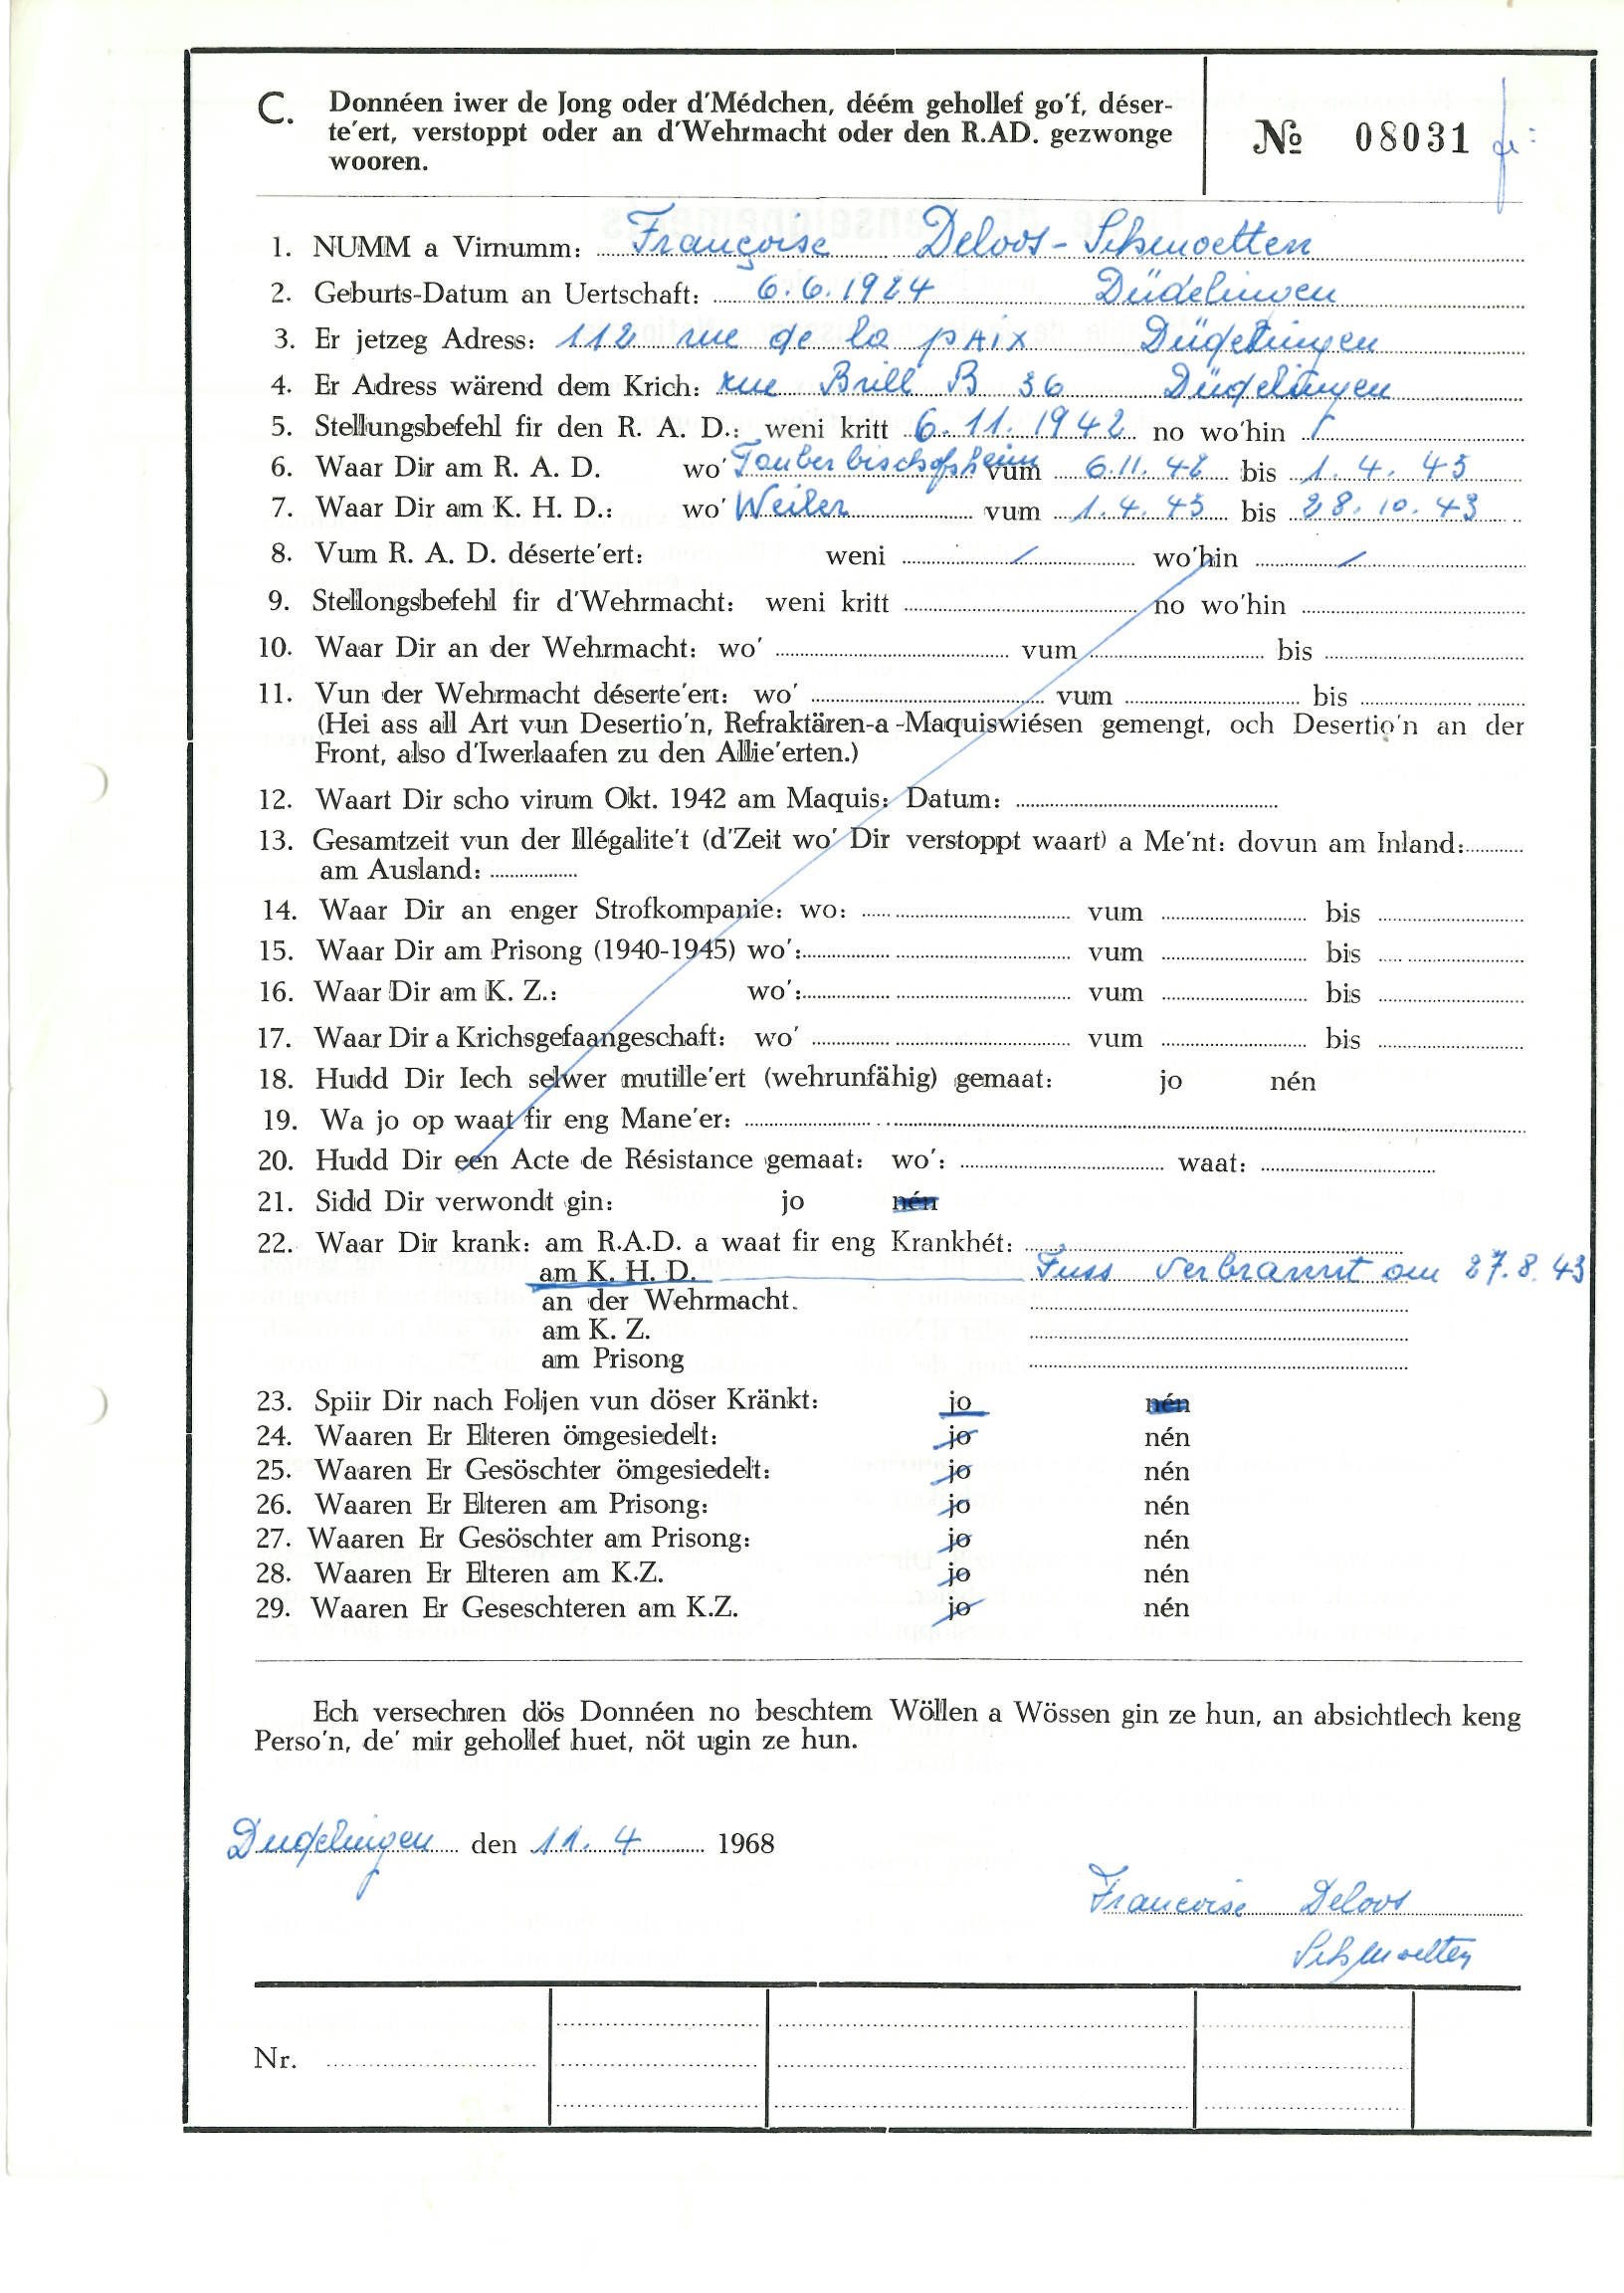 C. Donnéen iwer de Jong oder d'Médchen, déém gehollef go'f, déser-
te'ert, verstoppt oder an d'Wehrmacht oder den R.AD. gezwonge
wooren.
№ 08031
1. NUMM a Virnumm: Françoise Deloos-Schmoetten
2. Geburts-Datum an Uertschaft: 6.6.1924 Düdelingen
3. Er jetzeg Adress: 112 rue de la pAix Düdelingen
4. Er Adress wärend dem Krich: rue Brill B 36 Düdelingen
5. Stellungsbefehl fir den R. A. D.: weni kritt 6.11.1942 no wo'hin
6. Waar Dir am R. A. D. wo' Tauberbischofsheim vum 6.11.42 bis 1.4.43
7. Waar Dir am K. H. D.: wo' Weiler vum 1.4.43 bis 28.10.43
8. Vum R. A. D. déserte'ert: weni / wo'hin /
9. Stellongsbefehl fir d'Wehrmacht: weni kritt no wo'hin
10. Waar Dir an der Wehrmacht: wo' vum bis
11. Vun der Wehrmacht déserte'ert: wo' vum bis
(Hei ass all Art vun Desertio'n, Refraktären-a-Maquiswiésen gemengt, och Desertio'n an der
Front, also d'Iwerlaafen zu den Allie'erten.)
12. Waart Dir scho virum Okt. 1942 am Maquis: Datum:
13. Gesamtzeit vun der Illégalite't (d'Zeit wo' Dir verstoppt waart) a Me'nt: dovun am Inland:
am Ausland:
14. Waar Dir an enger Strofkompanie: wo: vum bis
15. Waar Dir am Prisong (1940-1945) wo': vum bis
16. Waar Dir am K. Z.: wo': vum bis
17. Waar Dir a Krichsgefaangeschaft: wo' vum bis
18. Hudd Dir Iech selwer mutille'ert (wehrunfähig) gemaat: jo nén
19. Wa jo op waat fir eng Mane'er:
20. Hudd Dir een Acte de Résistance gemaat: wo': waat:
21. Sidd Dir verwondt gin: jo nén
22. Waar Dir krank: am R.A.D. a waat fir eng Krankhét:
am K. H. D. Fuss verbrannt am 27.8.43
an der Wehrmacht.
am K. Z.
am Prisong
23. Spiir Dir nach Foljen vun döser Kränkt: jo nén
24. Waaren Er Elteren ömgesiedelt: jo nén
25. Waaren Er Gesöschter ömgesiedelt: jo nén
26. Waaren Er Elteren am Prisong: jo nén
27. Waaren Er Gesöschter am Prisong: jo nén
28. Waaren Er Elteren am K.Z. jo nén
29. Waaren Er Geseschteren am K.Z. jo nén
Ech versechren dös Donnéen no beschtem Wöllen a Wössen gin ze hun, an absichtlech keng
Perso'n, de' mir gehollef huet, nöt ugin ze hun.
Dudelingen den 11.4 1968
Francoise Deloos
Schmoetten
Nr.